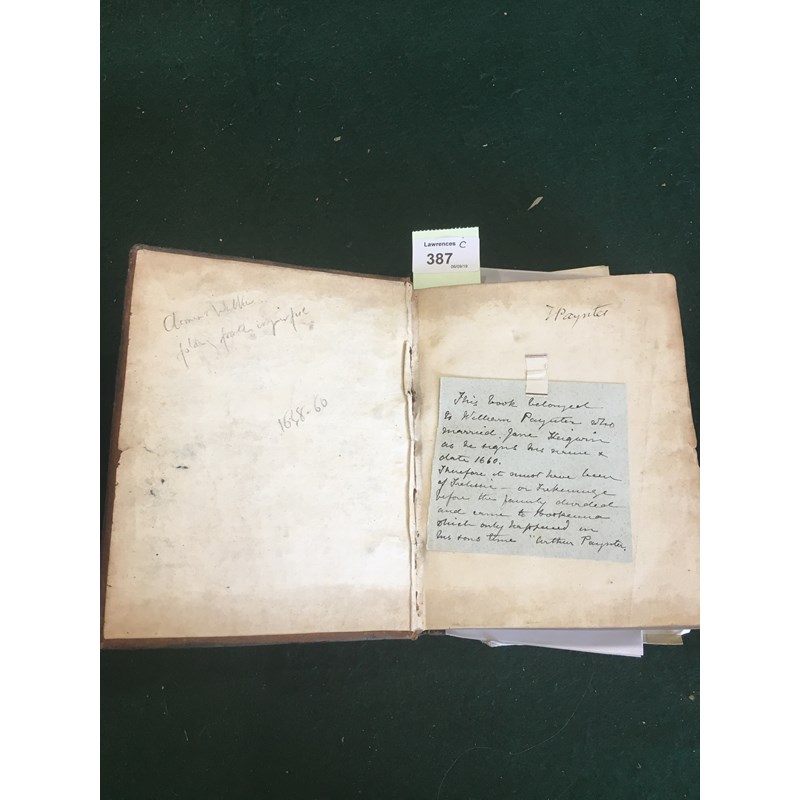 Lawrences C
387
1658-60
J Paynter
This book belonged
to William Paynter who
married Jane Keigwin
as he signs his name &
date 1660.
Therefore it must have been
of Trelissic - or Trekenning
before the family divided
and came to Boskenna
which only happened in
his sons time "Arthur Paynter.